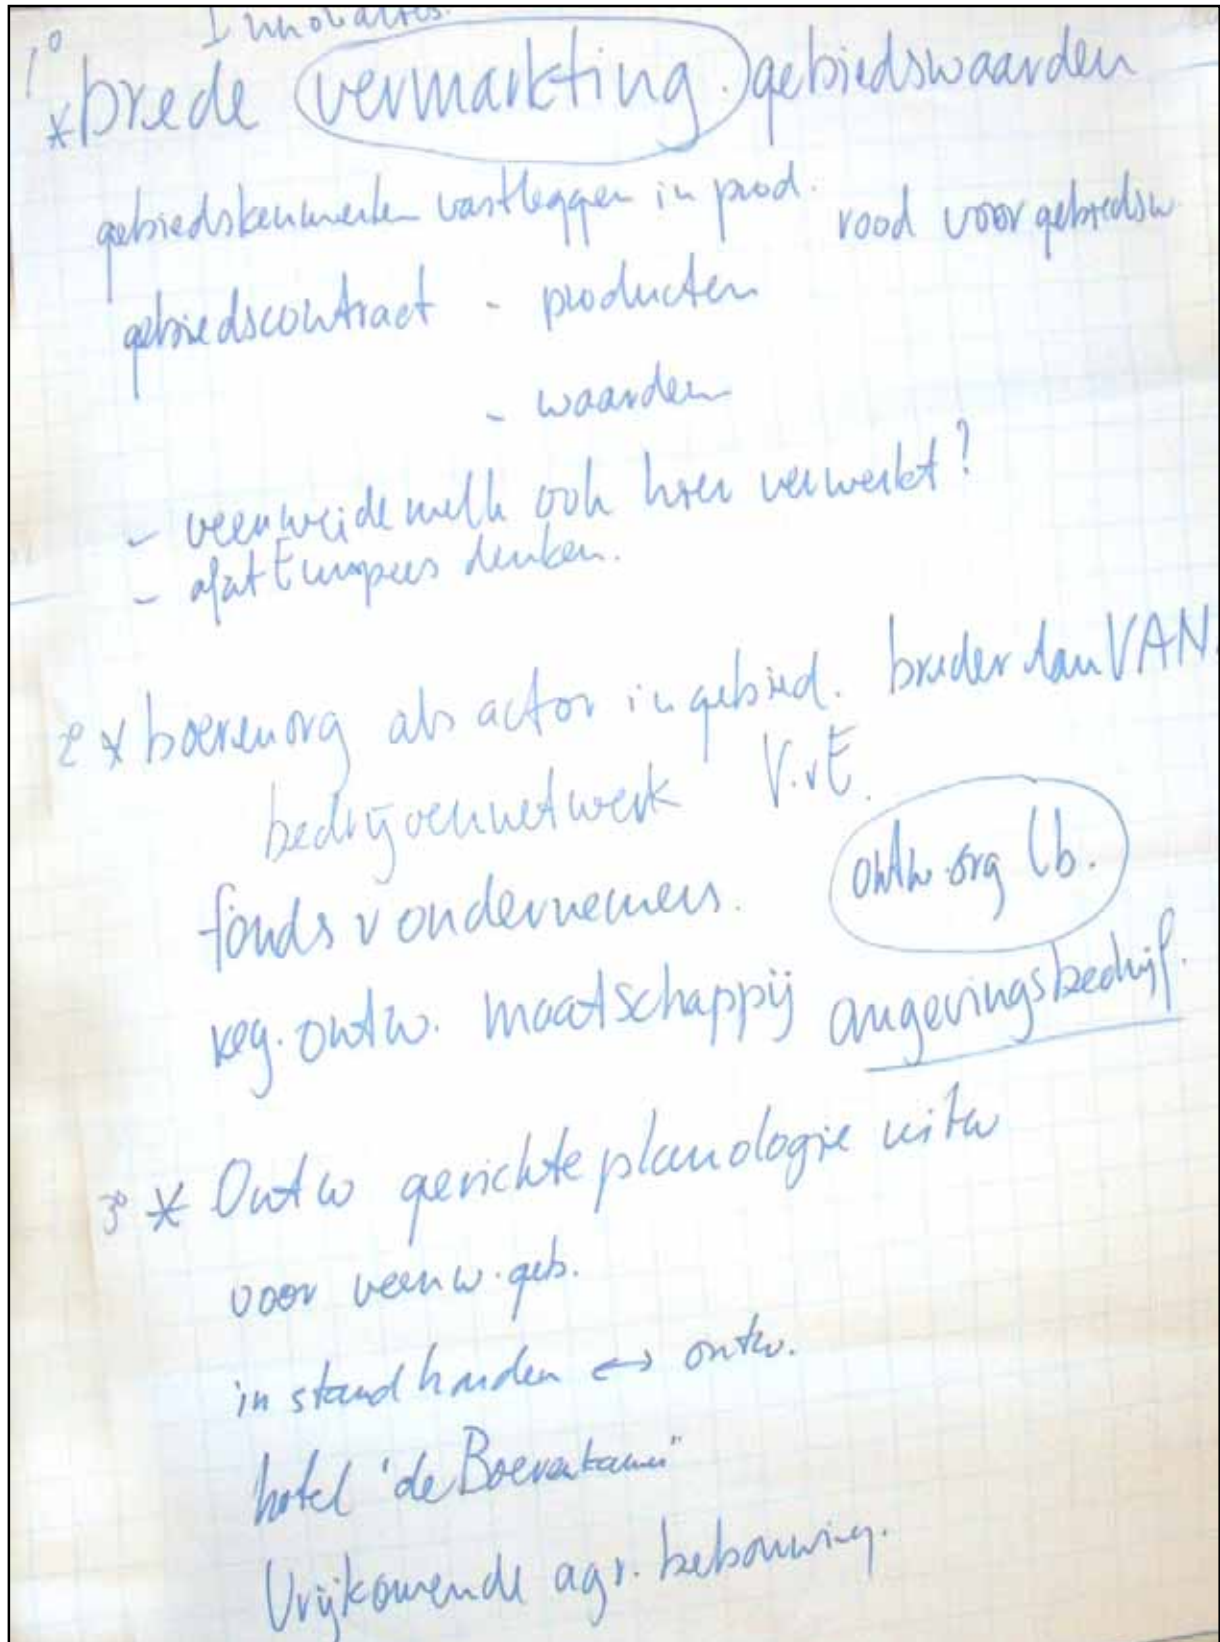 Innovaties.
1° * brede vermarkting gebiedswaarden
gebiedskenmerken vastleggen in prod.
rood voor gebiedsw
gebiedscontract - producten
- waarden
- veenweidemelk ook hier verwerkt?
- Europees denken.
2° * boerenorg als actor in gebied. breder dan VAN.
bedrijvennetwerk V.vE.
fonds v ondernemers. ontw. org lb.
reg. ontw. maatschappij omgevingsbedrijf.
3° * Ontw gerichte planologie uitw
voor veenw. geb.
in stand houden ↔ ontw.
hotel 'de Boerenkamer'
Vrijkomende agr. bebouwing.